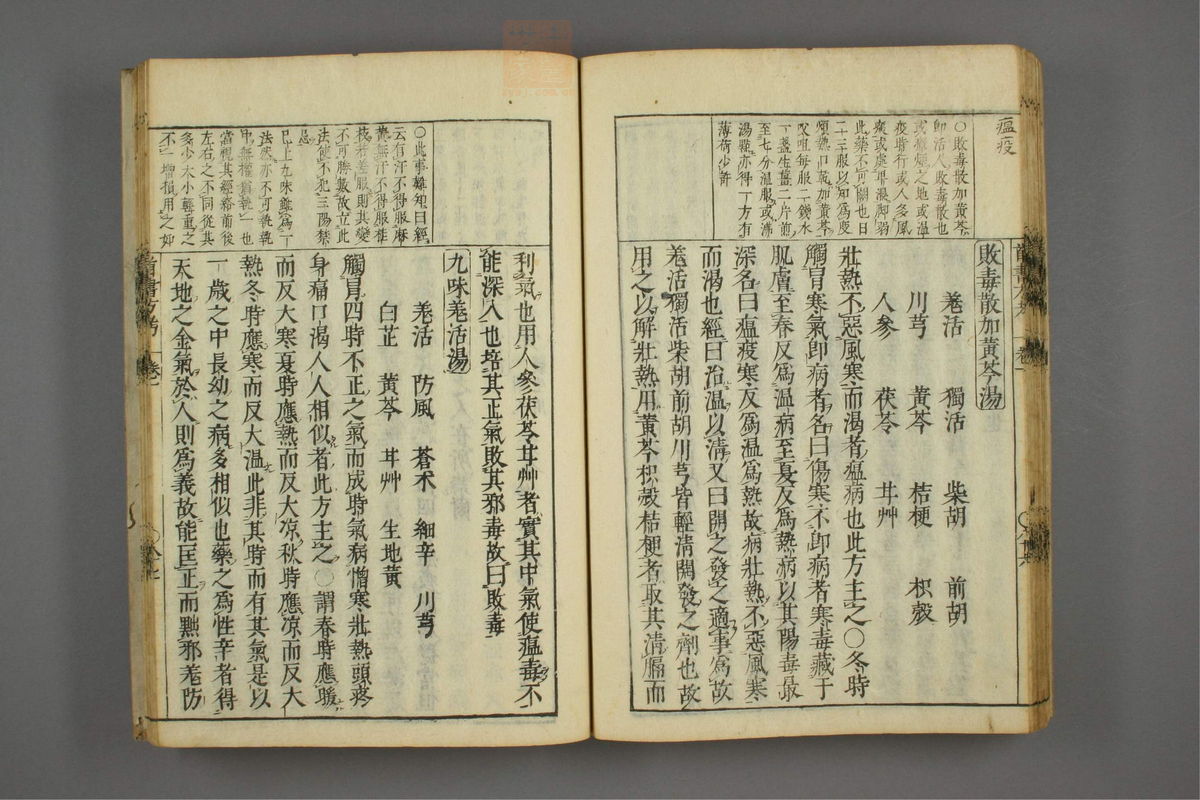 瘟疫
○敗毒散加黃芩
卽活人敗毒散也
或瘴煙之地或温
疫時行或人多風
痰或處卑濕脚弱
此藥不可闕也日
二三服以知爲度
煩熱口乾加黃芩
㕮咀每服二錢水
一盞生薑二片煎
至七分温服或沸
湯點亦得一方有
薄荷少許
敗毒散加黃芩湯
羗活 獨活 柴胡 前胡
川芎 黃芩 桔梗 枳殼
人參 茯苓 甘艸
壯熱不惡風寒而渴者瘟病也此方主之○冬時
觸冒寒氣卽病者名曰傷寒不卽病者寒毒藏于
肌膚至春反爲温病至夏反爲熱病以其陽毒最
深名曰瘟疫寒反爲温爲熱故病壯熱不惡風寒
而渴也經曰治温以淸又曰開之發之適事爲故
羗活獨活柴胡前胡川芎皆輕淸開發之劑也故
用之以解壯熱用黃芩枳殼桔梗者取其淸膈而
○此事難知曰經
云有汗不得服麻
黃無汗不得服桂
枝若差服則其變
不可勝數故立此
法使不犯三陽禁
忌
已上九味雖爲一
法然亦不可執執
中無權猶執一也
當視其經絡前後
左右之不同從其
多少大小輕重之
不一增損用之如
利氣也用人參茯苓甘艸者實其中氣使瘟毒不
能深入也培其正氣敗其邪毒故曰敗毒
九味羗活湯
羗活 防風 蒼朮 細辛 川芎
白芷 黃芩 甘艸 生地黃
觸冒四時不正之氣而成時氣病憎寒壯熱頭疼
身痛口渴人人相似者此方主之○謂春時應暖
而反大寒夏時應熱而反大凉秋時應凉而反大
熱冬時應寒而反大温此非其時而有其氣是以
一歲之中長幼之病多相似也藥之爲性辛者得
天地之金氣於人則爲義故能匡正而黜邪羗防